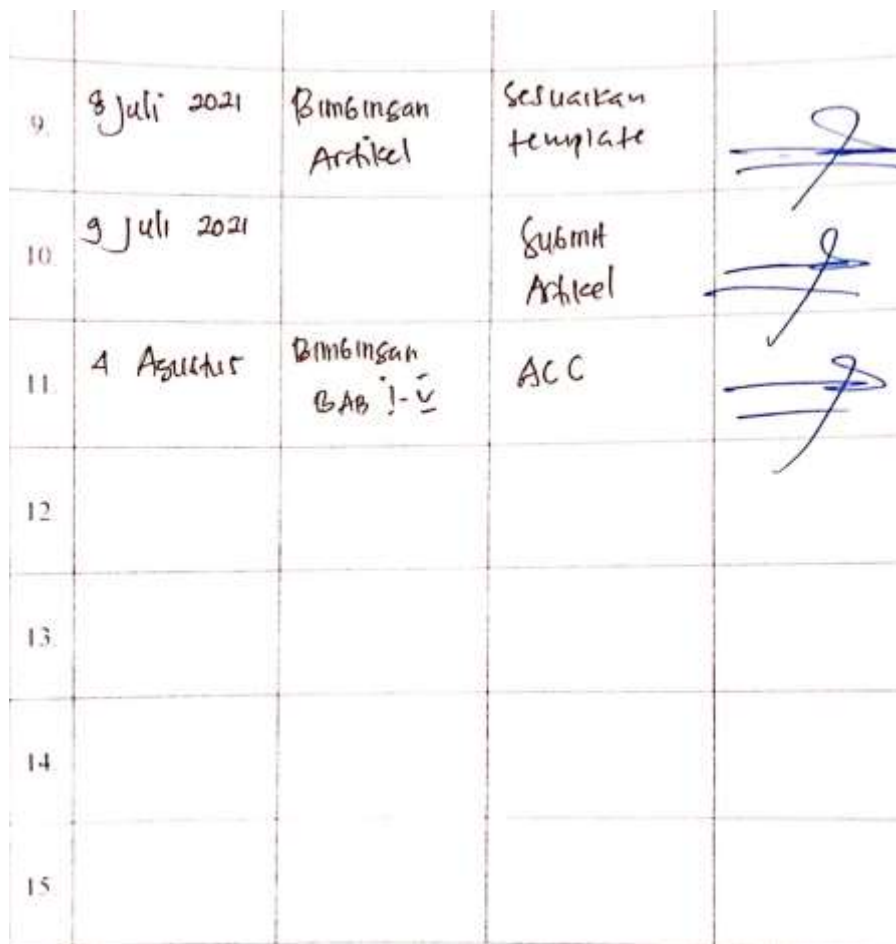 9 8 Juli 2021 Bimbingan Sesuaikan
Artikel template
10 9 Juli 2021 Submit
Artikel
11. 4 Agustus Bimbingan ACC
BAB I-V
12
13
14
15